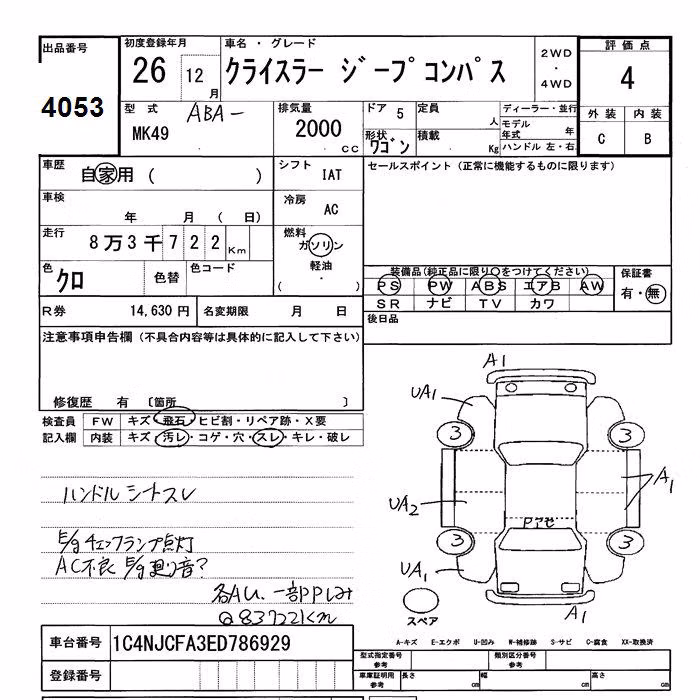 出品番号
4053
初度登録年月
26 12 月
車名・グレード
クライスラー ジープコンパス
2WD
・
4WD
評価点
4
外装 内装
C B
型式
ABA-
MK49
排気量
2000
cc
ドア 5
形状
ワゴン
定員
人
積載
Kg
ディーラー・並行
モデル
年式 年
ハンドル 左・右
車歴
自家用 ( )
シフト
IAT
セールスポイント (正常に機能するものに限ります)
車検
年 月 ( 日)
冷房
AC
走行
8万3千722Km
燃料
ガソリン
軽油
( ・ )
色
クロ
色替
色コード
装備品(純正品に限り○をつけてください)
PS PW ABS エアB AW
SR ナビ TV カワ
保証書
有・無
R券 14,630円
名変期限 月 日
後日品
注意事項申告欄 (不具合内容等は具体的に記入して下さい)
修復歴 有 〔箇所 〕
検査員
記入欄
FW キズ・飛石・ヒビ割・リペア跡・X要
内装 キズ・汚レ・コゲ・穴・スレ・キレ・破レ
ハンドル シートスレ
E/gチェックランプ点灯
AC不良 E/g廻り音?
各AU、一部PPしみ
@83722km
A1
UA1
3
3
A1
UA2
Pアセ
3
3
UA1
A1
スペア
A-キズ E-エクボ U-凹み W-補修跡 S-サビ C-腐食 XX-取換済
車台番号 1C4NJCFA3ED786929
登録番号
型式指定番号
参考
類別区分番号
参考
車庫証明用
参考
長さ cm 幅 cm 高さ cm